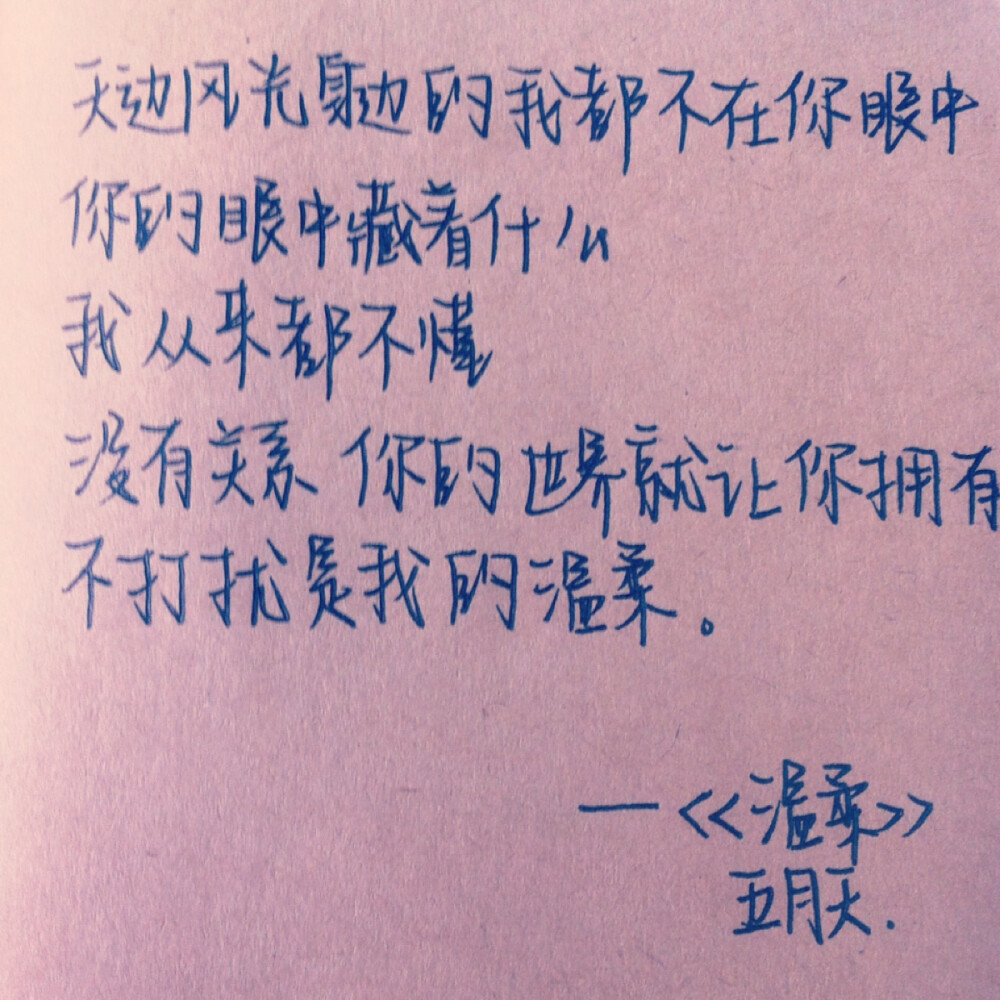 天边风光身边的我都不在你眼中
你的眼中藏着什么
我从来都不懂
没有关系 你的世界就让你拥有
不打扰是我的温柔。
—<<温柔>>
五月天.